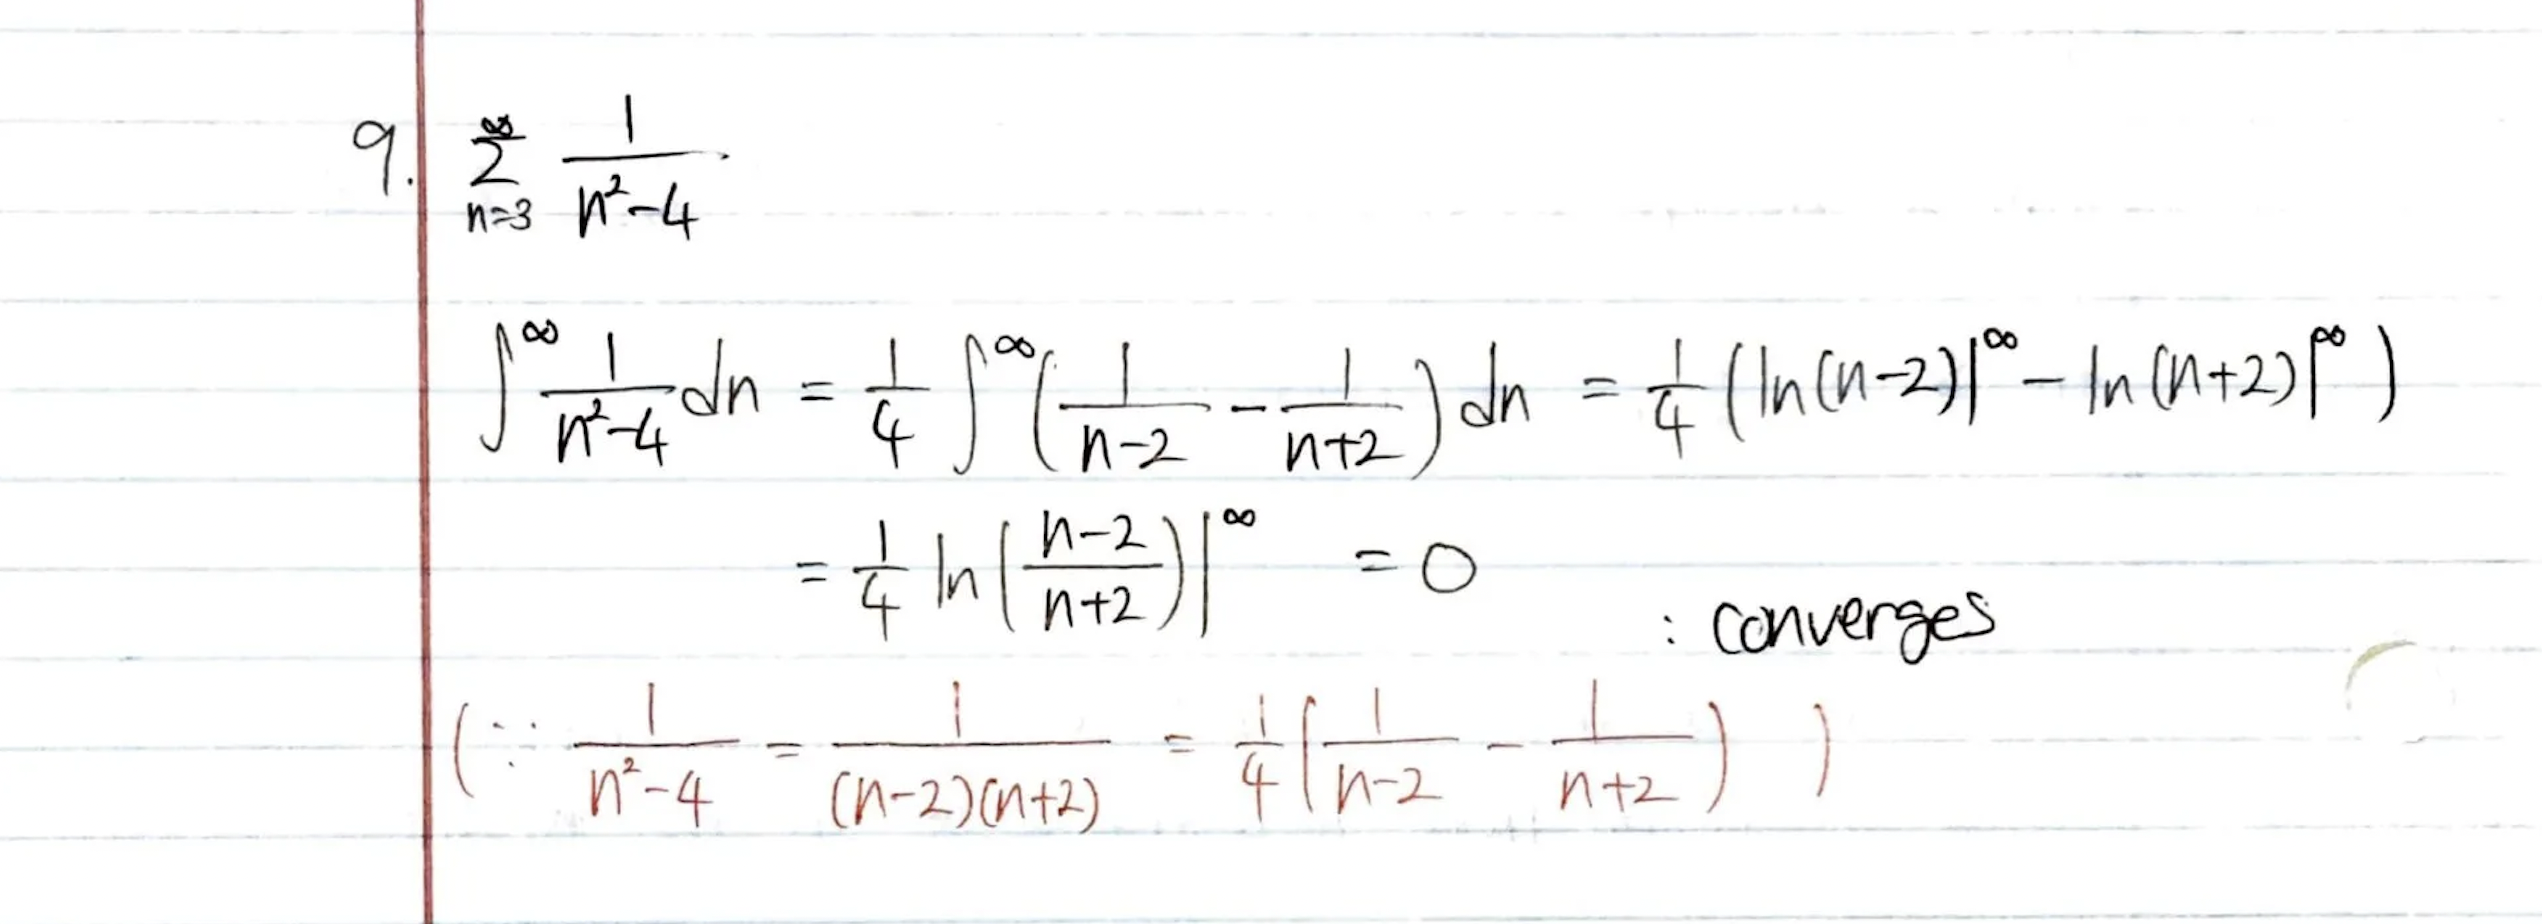 9. $\sum_{n=3}^{\infty} \frac{1}{n^2-4}$
$\int^{\infty} \frac{1}{n^2-4} dn = \frac{1}{4} \int^{\infty} \left( \frac{1}{n-2} - \frac{1}{n+2} \right) dn = \frac{1}{4} \left( \ln(n-2) |^{\infty} - \ln(n+2) |^{\infty} \right)$
$= \frac{1}{4} \ln \left( \frac{n-2}{n+2} \right) |^{\infty} = 0$ : converges
$( \because \frac{1}{n^2-4} = \frac{1}{(n-2)(n+2)} = \frac{1}{4} \left( \frac{1}{n-2} - \frac{1}{n+2} \right) )$